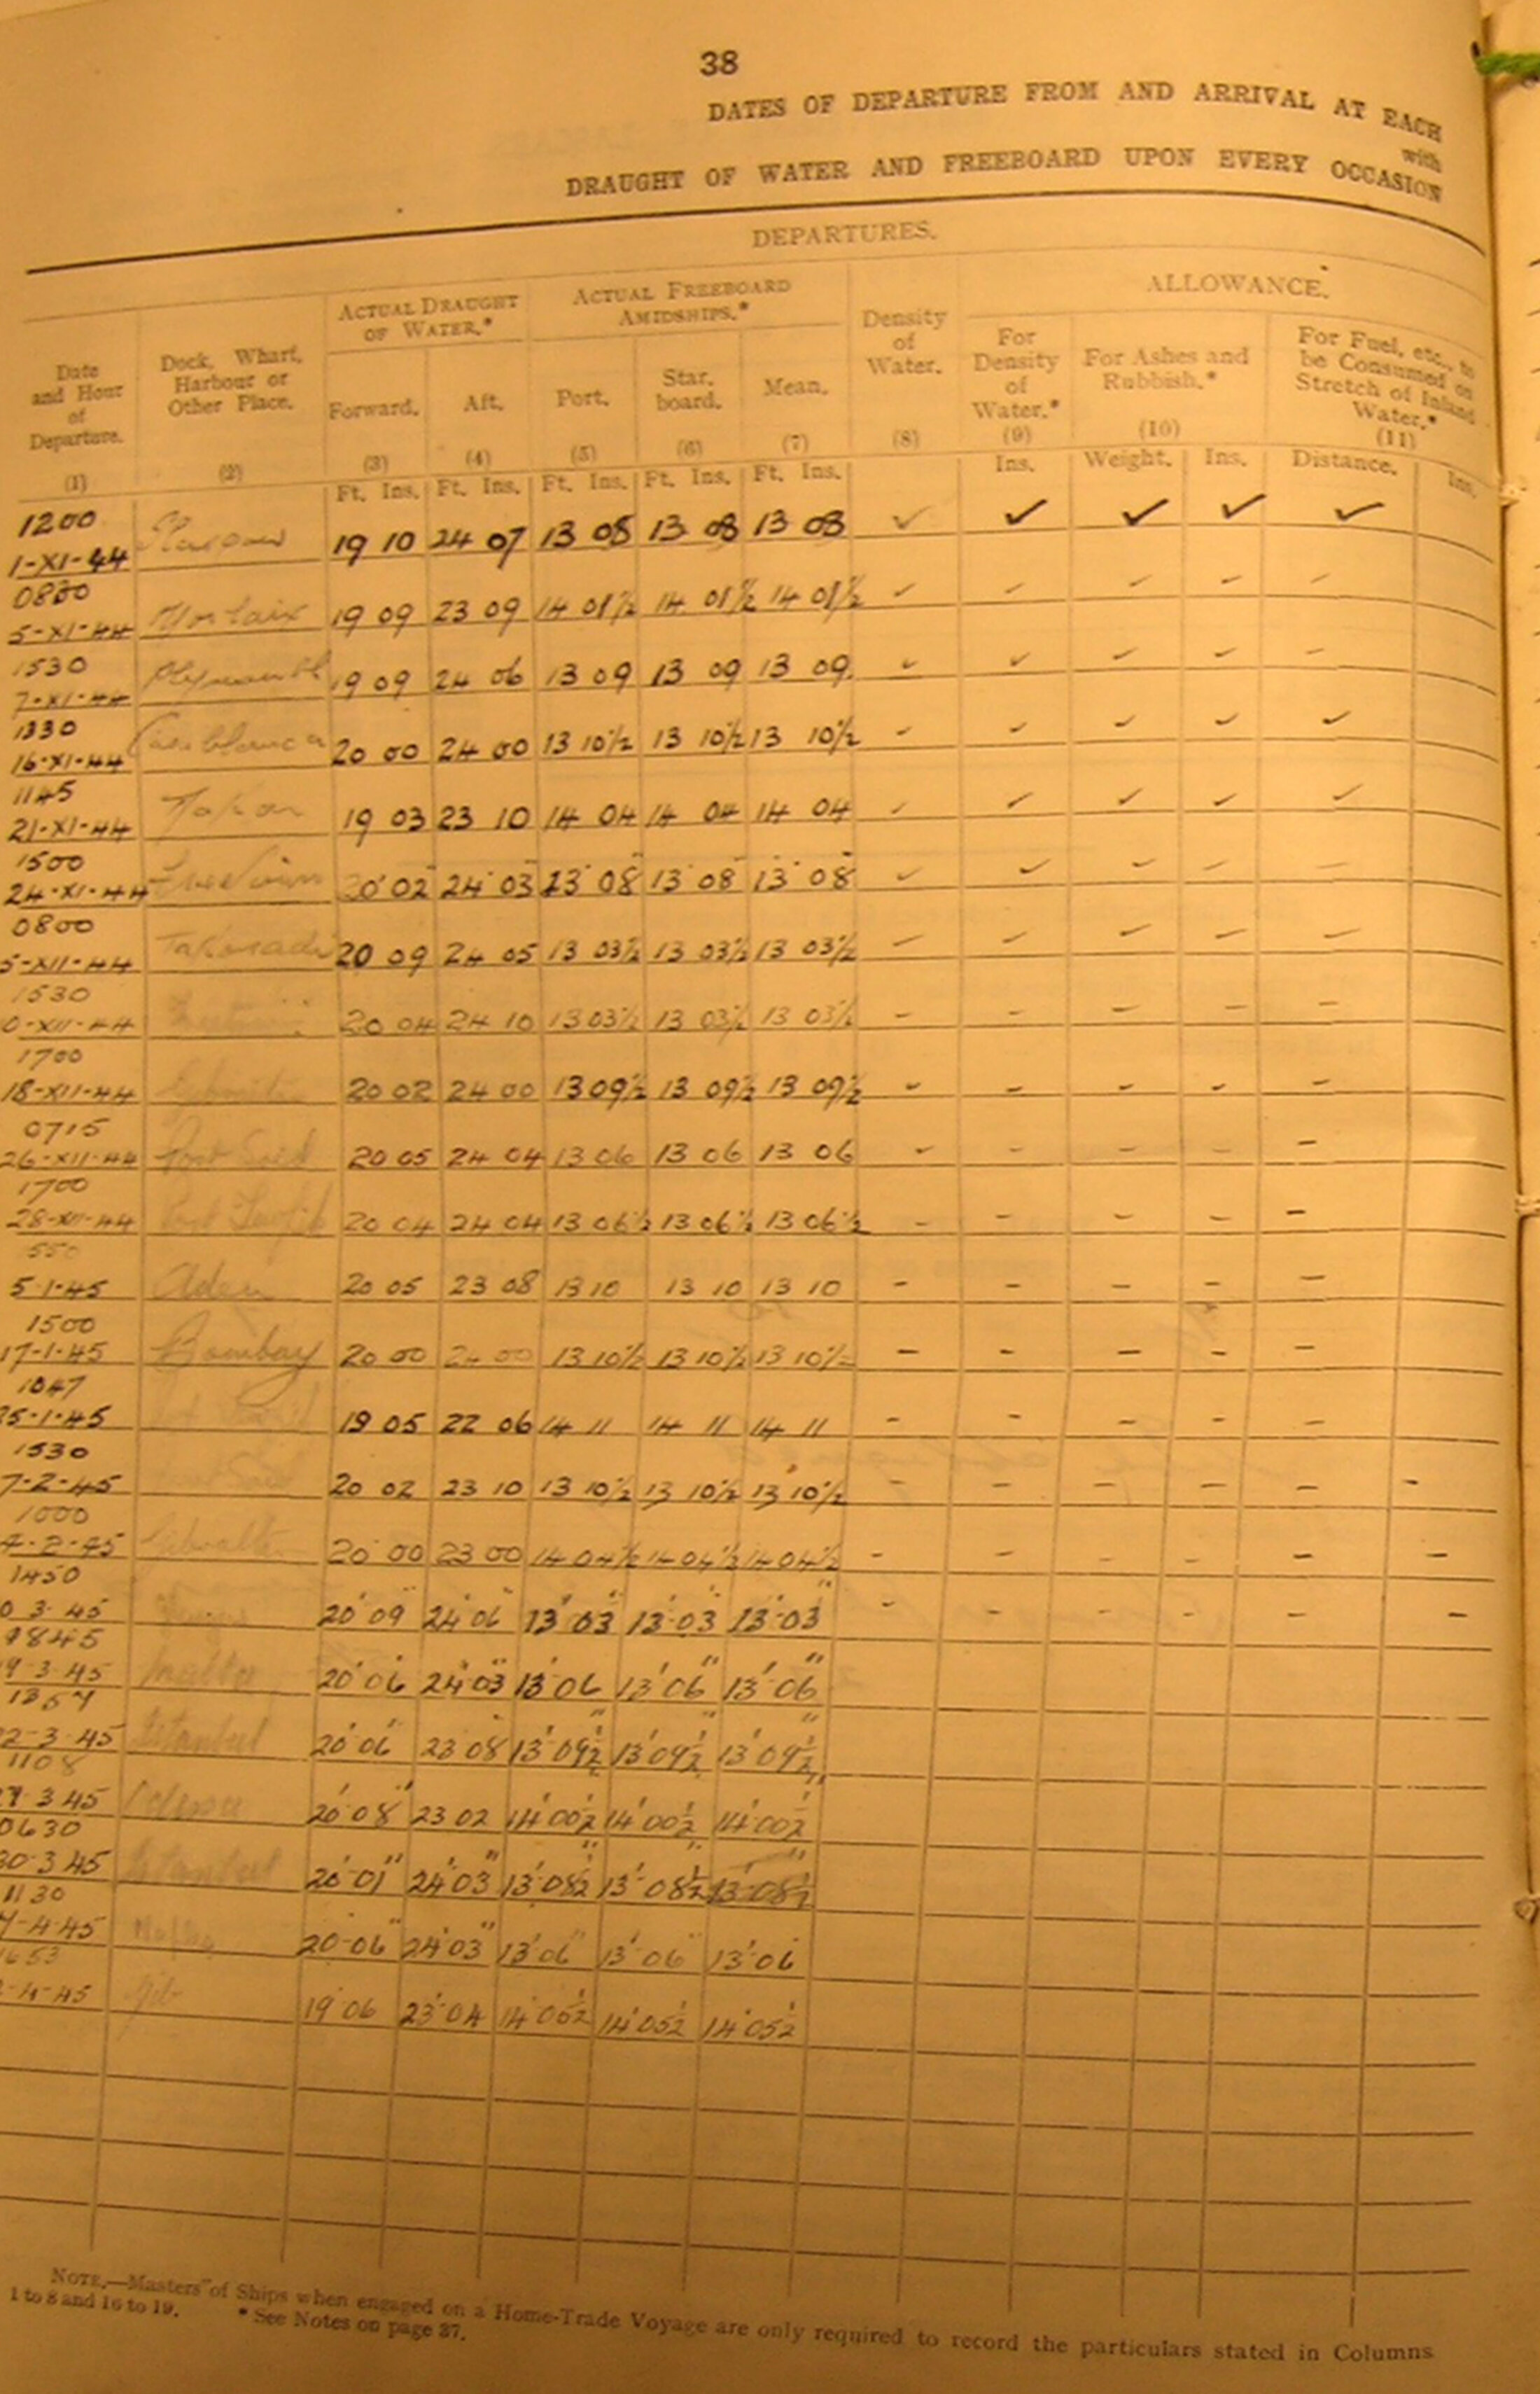 38
DATES OF DEPARTURE FROM AND ARRIVAL AT EACH
with
DRAUGHT OF WATER AND FREEBOARD UPON EVERY OCCASION
DEPARTURES.
Date and Hour of Departure. (1)
Dock, Wharf, Harbour or Other Place. (2)
ACTUAL DRAUGHT OF WATER.*
Forward. (3) Aft. (4)
ACTUAL FREEBOARD AMIDSHIPS.*
Port. (5) Star. board. (6) Mean. (7)
Density of Water. (8)
ALLOWANCE.
For Density of Water.* (9)
For Ashes and Rubbish.* (10)
For Fuel, etc., to be Consumed on Stretch of Inland Water.* (11)
Ft. Ins. Ft. Ins. Ft. Ins. Ft. Ins. Ft. Ins. Ins. Weight. Ins. Distance. Ins.
1200
1-XI-44 Glasgow 19 10 24 07 13 08 13 08 13 08 ✓ ✓ ✓ ✓ ✓
5-XI-44 Morlaix 19 09 23 09 14 01½ 14 01½ 14 01½
1530
7-XI-44 Plymouth 19 09 24 06 13 09 13 09 13 09
1330
16-XI-44 Casablanca 20 00 24 00 13 10½ 13 10½ 13 10½
1145
21-XI-44 Dakar 19 03 23 10 14 04 14 04 14 04
1500
24-XI-44 Freetown 20' 02 24' 03 13' 08 13' 08 13' 08
0800
5-XII-44 Takoradi 20 09 24 05 13 03½ 13 03½ 13 03½
1530
0-XII-44 20 04 24 10 13 03½ 13 03½ 13 03½
1700
18-XII-44 Gibraltar 20 02 24 00 13 09½ 13 09½ 13 09½
0715
26-XII-44 Port Said 20 05 24 04 13 06 13 06 13 06
1700
28-XII-44 Port Tewfik 20 04 24 04 13 06½ 13 06½ 13 06½
5-1-45 Aden 20 05 23 08 13 10 13 10 13 10
1500
17-1-45 Bombay 20 00 24 00 13 10½ 13 10½ 13 10½
1047
25-1-45 19 05 22 06 14 11 14 11 14 11
1530
7-2-45 Said 20 02 23 10 13 10½ 13 10½ 13 10½
1000
4-2-45 Gibraltar 20 00 23 00 14 04½ 14 04½ 14 04½
1450
0 3 45 20' 09" 24' 06 13' 03" 13' 03 13' 03"
9-3-45 Malta 20' 06 24' 03" 13' 06 13' 06" 13' 06"
1357
22-3-45 Istanbul 20' 06" 23 08 13' 09½ 13' 09½ 13' 09½
1108
27-3 45 Odessa 20' 08" 23 02 14' 00½ 14' 00½ 14' 00½
0630
30-3 45 Istanbul 20' 01" 24' 03" 13' 08½ 13' 08½ 13' 08½
1130
7-4-45 Malta 20-06" 24' 03" 13' 06" 13' 06" 13' 06
1653
-4-45 Gib 19' 06 23' 04 14' 05½ 14' 05½ 14' 05½
NOTE.—Masters of Ships when engaged on a Home-Trade Voyage are only required to record the particulars stated in Columns
1 to 8 and 16 to 19. * See Notes on page 37.